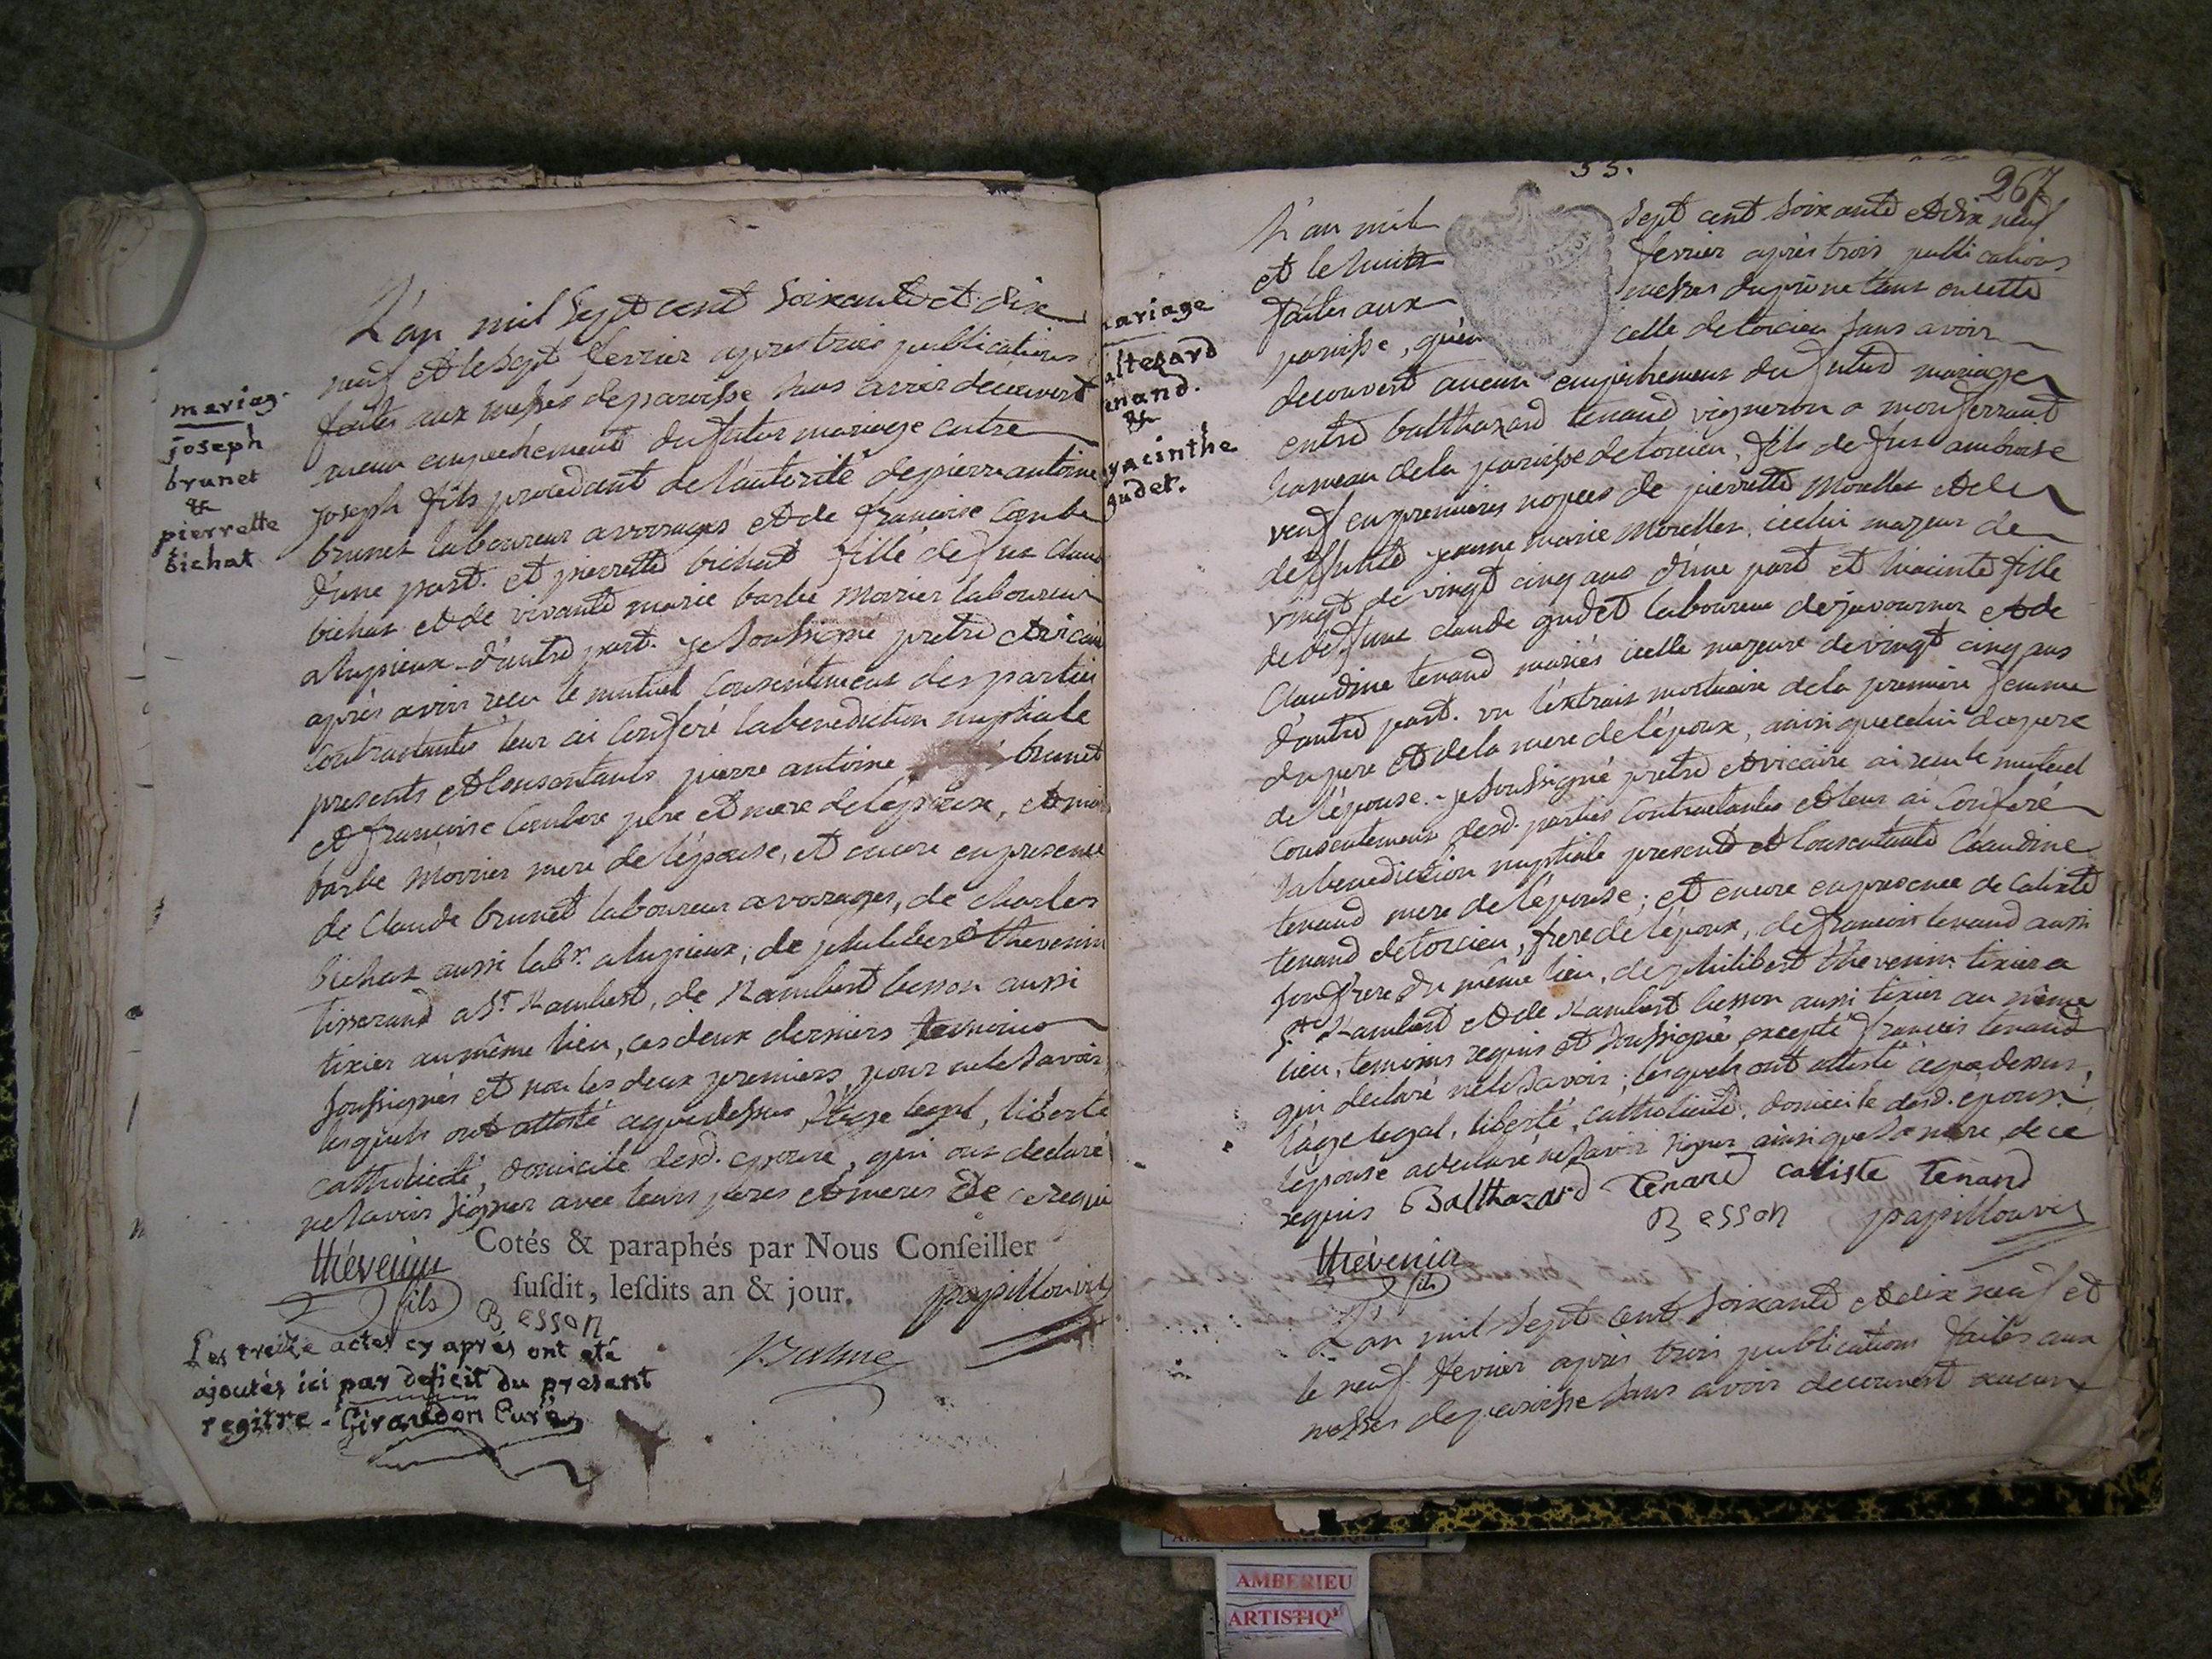 mariag.
joseph
brunet
&
pierrette
bichat
L'an mil sept cent soixante et dix
neuf et le sept fevrier apres trois publications
faites aux messes de paroisse sans avoir decouvert
aucun empechement du futur mariage entre
joseph fils procedant de l'autorité de pierre antoine
brunet laboureur a vorages et de francoise Combe
d'une part. et pierrette bichat fille de feu Claude
bichat et de vivante marie barbe morrier laboureur
a lupieux d'autre part. je soussigné pretre et vicaire
après avoir reçu le mutuel consentement des parties
contractantes leur ai conferé la benediction nuptiale
presents et consentants pierre antoine brunet
et francoise Combe pere et mere de l'époux, et marie
barbe morrier mere de l'épouse, et encore en presence
de Claude brunet laboureur a vorages, de charles
bichat aussi labr. a lupieux, de philibert thevenin
tisserand a St Rambert, de Rambert besson aussi
tixier au même lieu, ces deux derniers temoins
soussignés et non les deux premiers pour ne le savoir,
lesquels ont attesté ce que dessus, l'age legal, liberté
catholicité, domicile desd. epoux, qui ont declaré
ne savoir signer avec leurs peres et meres de ce requis
Cotés & paraphés par Nous Conseiller
susdit, lesdits an & jour.
thévenin
fils
Besson
papillon vic
Balme
Les treize actes cy après ont été
ajoutés ici par deficit du present
regitre - Giraudon Curé
55.
267
ariage
altesard
enand.
&
yacinthe
gudet.
L'an mil sept cent soixante et dix neuf
et le huit fevrier après trois publications
faites aux messes du prône tant en cette
paroisse, qu'en celle de torcieu sans avoir
decouvert aucun empechement du futur mariage
entre balthazard tenand vigneron a monferrand
hameau de la paroisse de torcieu, fils de feu ambroise
veuf en premieres nopces de pierrette Morellet et de
deffunte jeanne marie Morellet, icelui majeur de
vingt de vingt cinq ans d'une part et hiacinte fille
de deffunt claude gudet laboureur de javornoz et de
Claudine tenand mariés icelle majeure de vingt cinq ans
d'autre part. vu l'extrait mortuaire de la premiere femme
du pere et de la mere de l'époux, ainsi que celui du pere
de l'épouse. je soussigné pretre et vicaire ai reçu le mutuel
consentement desd. parties contractantes et leur ai conferé
la benediction nuptiale presente et consentante Claudine
tenand mere de l'épouse; et encore en presence de Calixte
tenand de torcieu, frere de l'époux, de francois tenand aussi
son frere du même lieu, de philibert thevenin tixier a
St Rambert et de Rambert besson aussi tixier au même
lieu, temoins requis et soussignés excepté francois tenand
qui declaré ne le savoir; lesquels ont attesté ce que dessus,
l'age legal, liberté, catholicité, domicile desd. époux
l'epouse a declaré ne savoir signer ainsi que sa mere de ce
requis Balthazard Tenand caliste Tenand
Besson papillon vic
thévenin
fils
L'an mil sept cent soixante et dix neuf et
le neuf fevrier après trois publications faites aux
messes de paroisse sans avoir decouvert aucun
AMBERIEU
ARTISTIQ